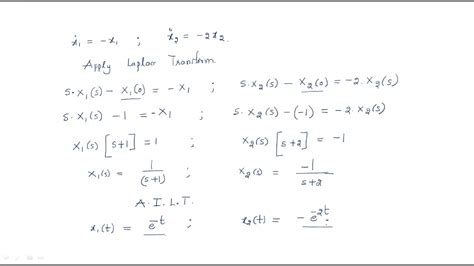 ẋ₁ = -x₁ ; ẋ₂ = -2x₂.
Apply Laplace Transform
s·x₁(s) - x₁(0) = -x₁ ; s·x₂(s) - x₂(0) = -2·x₂(s)
s·x₁(s) - 1 = -x₁ ; s·x₂(s) - (-1) = -2·x₂(s)
x₁(s) [s+1] = 1 ; x₂(s) [s+2] = -1
x₁(s) = 1/(s+1) ; x₂(s) = -1/s+2
A.I.L.T.
x₁(t) = e^-t ; x₂(t) = -e^-2t.